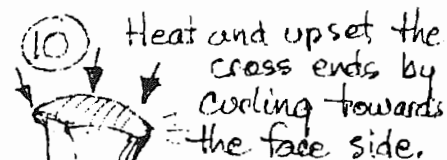 10 Heat and upset the
cross ends by
curling towards
the face side.